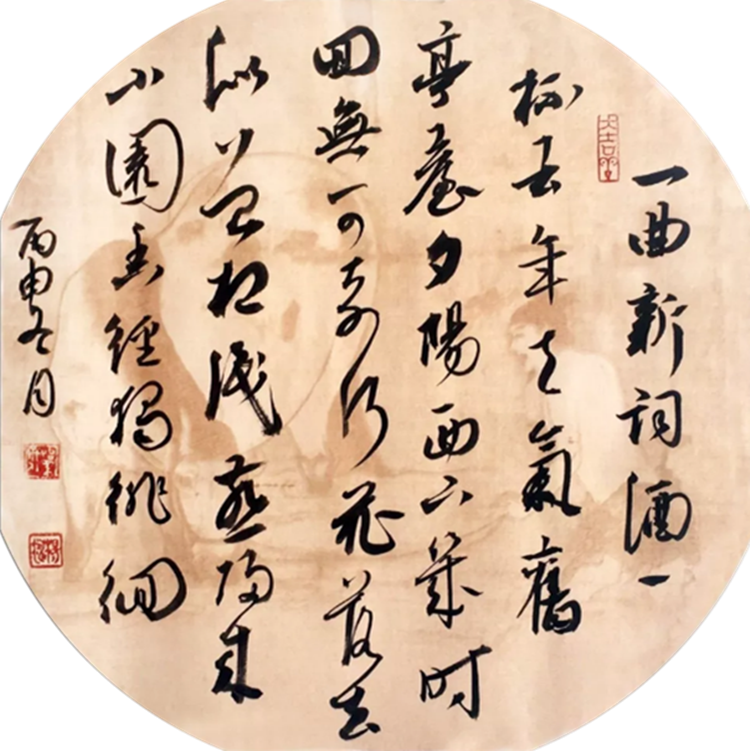 一曲新詞酒一
杯去年天氣舊
亭臺夕陽西下幾时
回無可奈何花落去
似曾相識燕歸来
小園香徑獨徘徊
丙申冬月